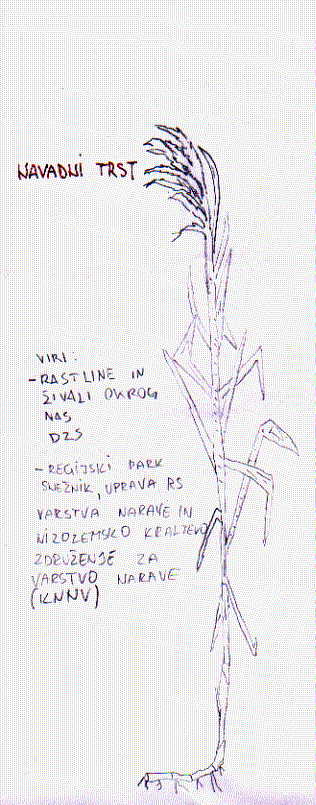 NAVADNI TRST
VIRI:
- RASTLINE IN
ŽIVALI OKROG
NAS
DZS
- REGIJSKI PARK
SNEŽNIK, UPRAVA RS
VARSTVA NARAVE IN
NIZOZEMSKO KRALJEVO
ZDRUŽENJE ZA
VARSTVO NARAVE
(KNNV)